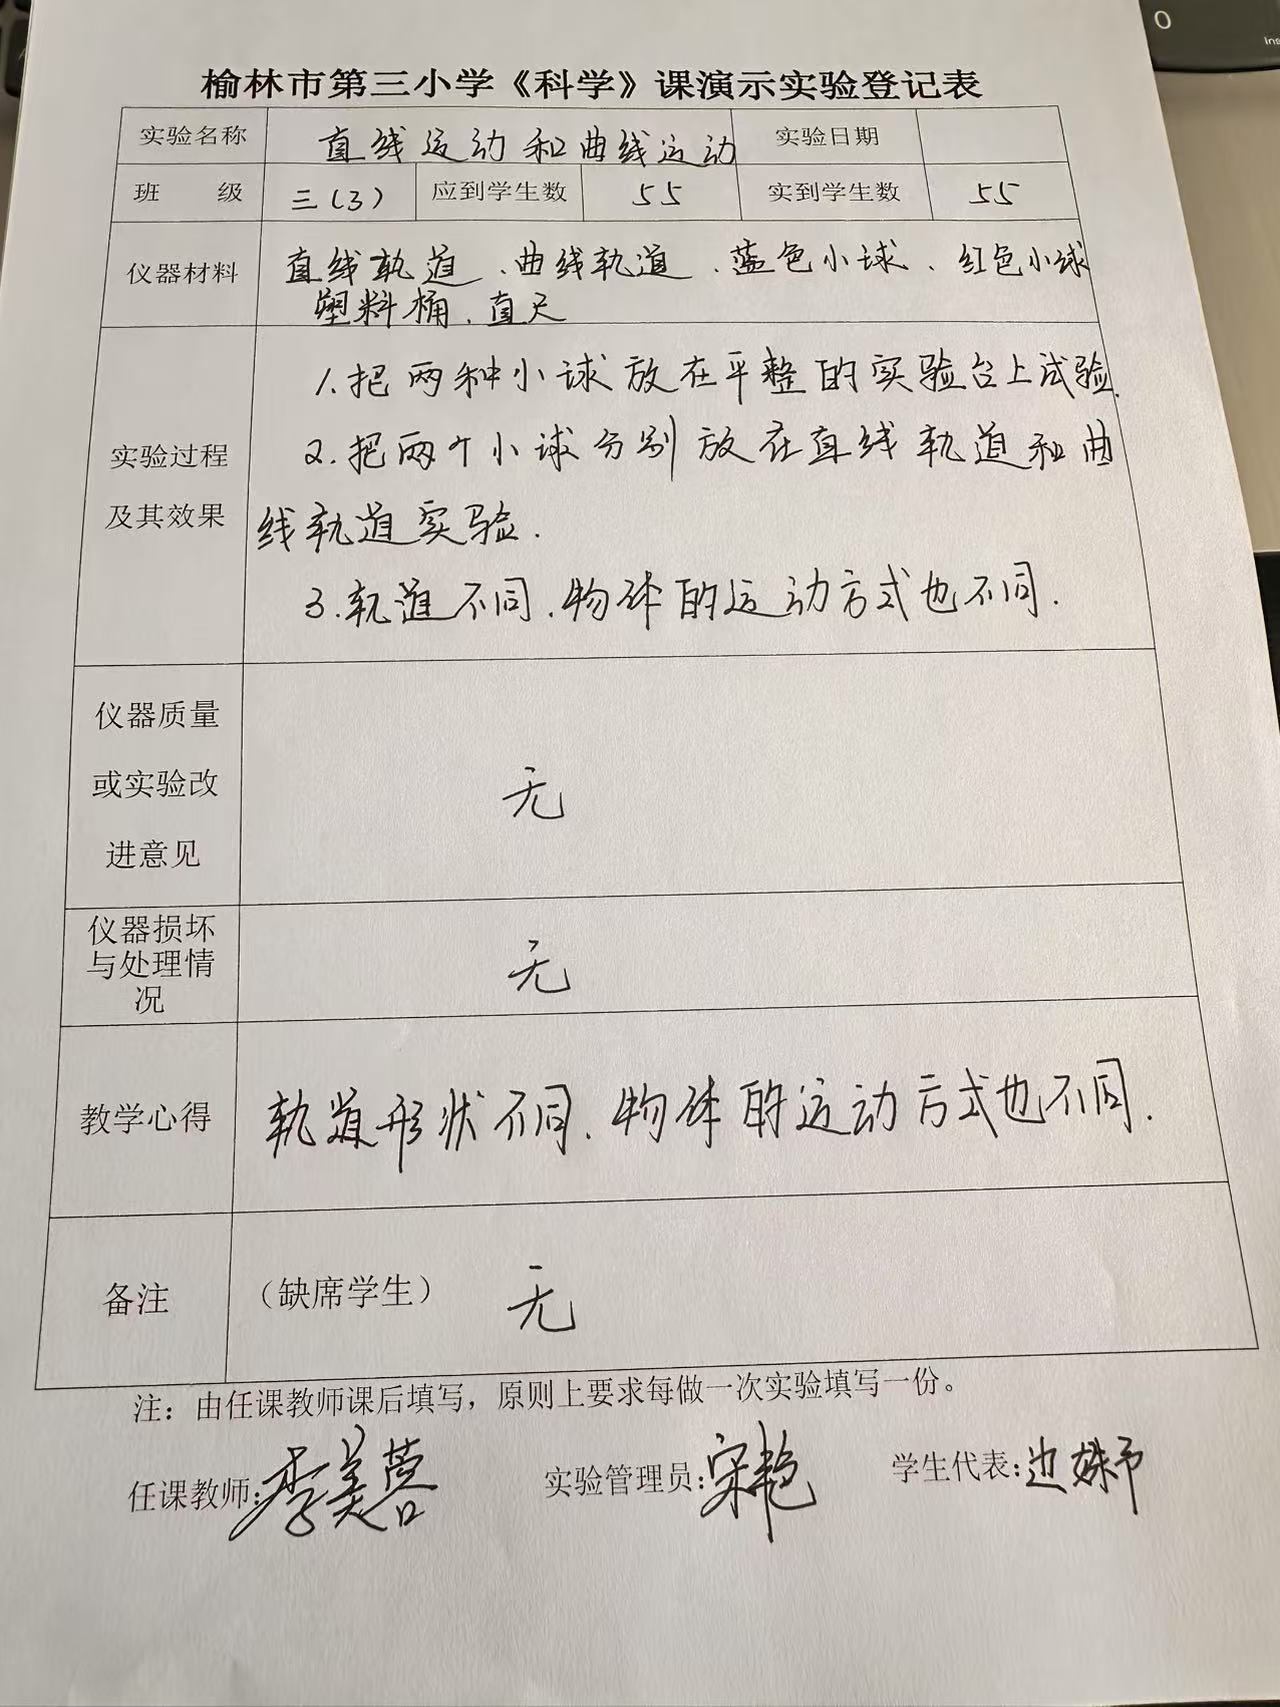 榆林市第三小学《科学》课演示实验登记表
实验名称 直线运动和曲线运动 实验日期
班 级 三（3） 应到学生数 55 实到学生数 55
仪器材料 直线轨道、曲线轨道、蓝色小球、红色小球
塑料桶、直尺
1.把两种小球放在平整的实验台上试验.
实验过程 2.把两个小球分别放在直线轨道和曲
及其效果 线轨道实验.
3.轨道不同.物体的运动方式也不同.
仪器质量
或实验改 无
进意见
仪器损坏
与处理情 无
况
教学心得 轨道形状不同.物体的运动方式也不同.
备注 （缺席学生） 无
注：由任课教师课后填写，原则上要求每做一次实验填写一份。
任课教师: 李美蓉 实验管理员: 宋艳 学生代表:
0
Ins